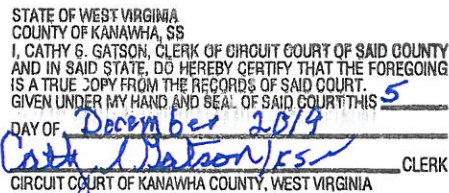 STATE OF WEST VIRGINIA
COUNTY OF KANAWHA, SS
I, CATHY S. GATSON, CLERK OF CIRCUIT COURT OF SAID COUNTY
AND IN SAID STATE, DO HEREBY CERTIFY THAT THE FOREGOING
IS A TRUE COPY FROM THE RECORDS OF SAID COURT.
GIVEN UNDER MY HAND AND SEAL OF SAID COURT THIS 5
DAY OF December 2019
Cathy S Gatson/ss CLERK
CIRCUIT COURT OF KANAWHA COUNTY, WEST VIRGINIA